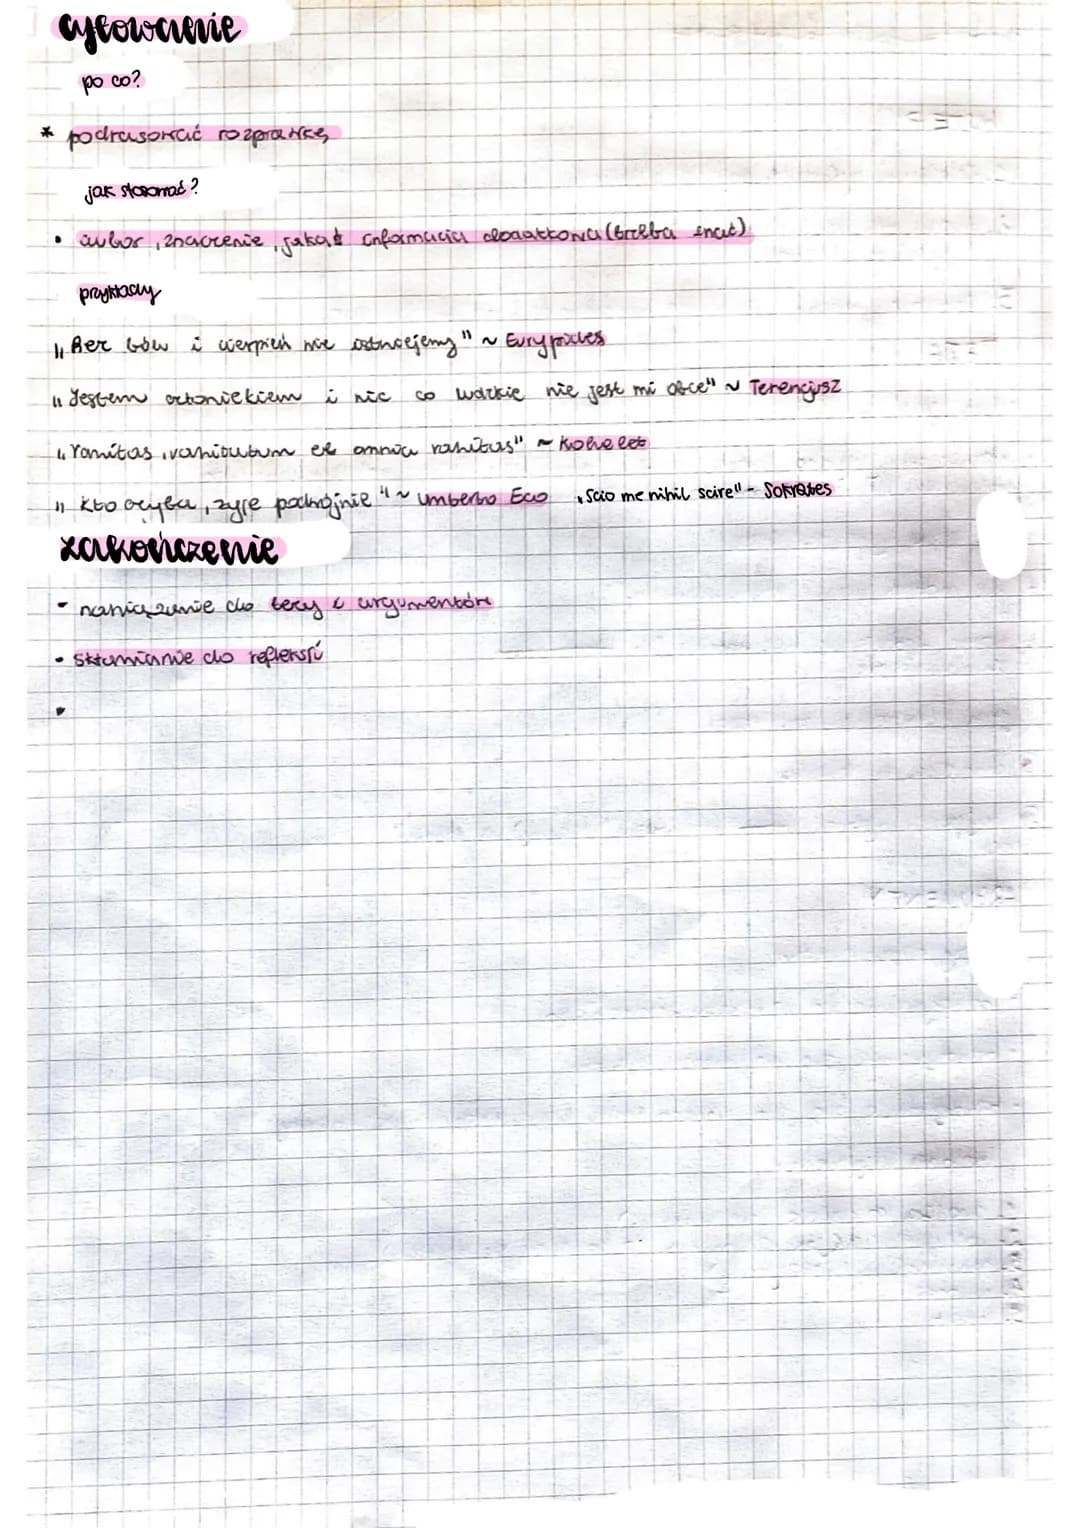 cytowanie
po co?
* podrasować rozprawkę
jak stosować?
• autor, znaczenie, jakaś informacja dodatkowa (trzeba znać)
przykłady
"Bez bólu i cierpień nie istniejemy" ~ Eurypides
"Jestem człowiekiem i nic co ludzkie nie jest mi obce" ~ Terencjusz
"Vanitas, vanitatum et omnia vanitas" ~ Kohelet
"Kto czyta, żyje podwójnie" ~ Umberto Eco "Scio me nihil scire" - Sokrates
zakończenie
- nawiązanie do tezy i argumentów
• skłanianie do refleksji
•